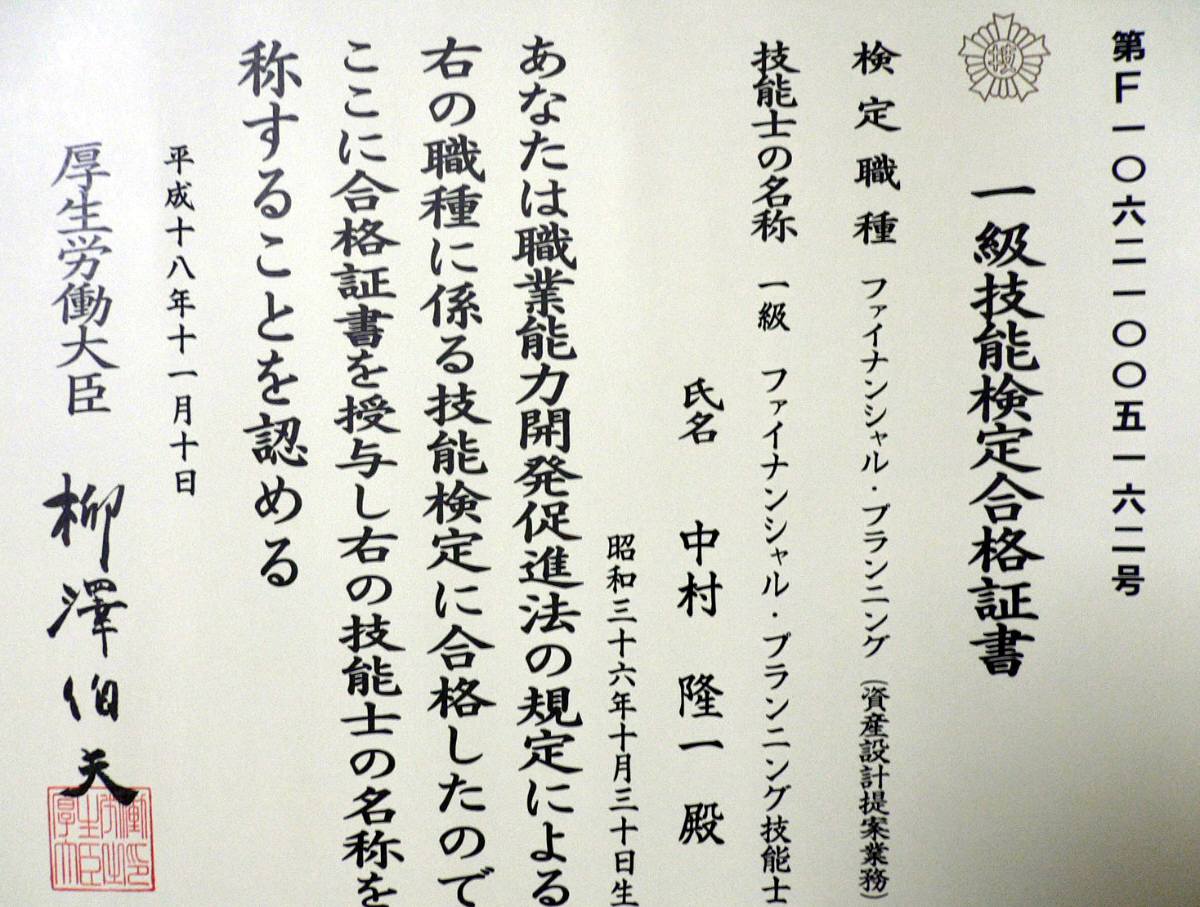 第F一〇六二一〇〇五一六二号
一級技能検定合格証書
検定職種 ファイナンシャル・プランニング(資産設計提案業務)
技能士の名称 一級 ファイナンシャル・プランニング技能士
氏名 中村 隆一 殿
昭和三十六年十月三十日生
あなたは職業能力開発促進法の規定による
右の職種に係る技能検定に合格したので
ここに合格証書を授与し右の技能士の名称を
称することを認める
平成十八年十一月十日
厚生労働大臣 柳澤伯夫
技
厚生労働大臣之印